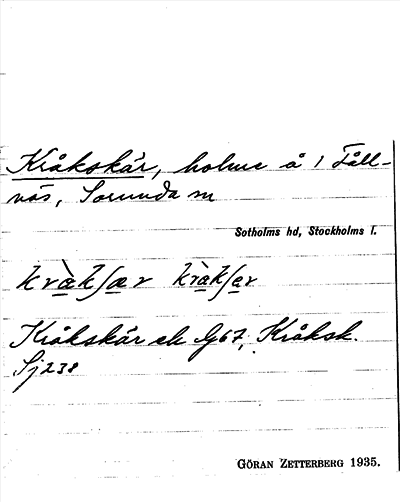 Kråkskär, holme å 1 Fåll-
näs, Sorunda sn
Sotholms hd, Stockholms l.
kràkʃær kràkʃær
Kråkskär ek G67, Kråksk.
Sj238
GÖRAN ZETTERBERG 1935.